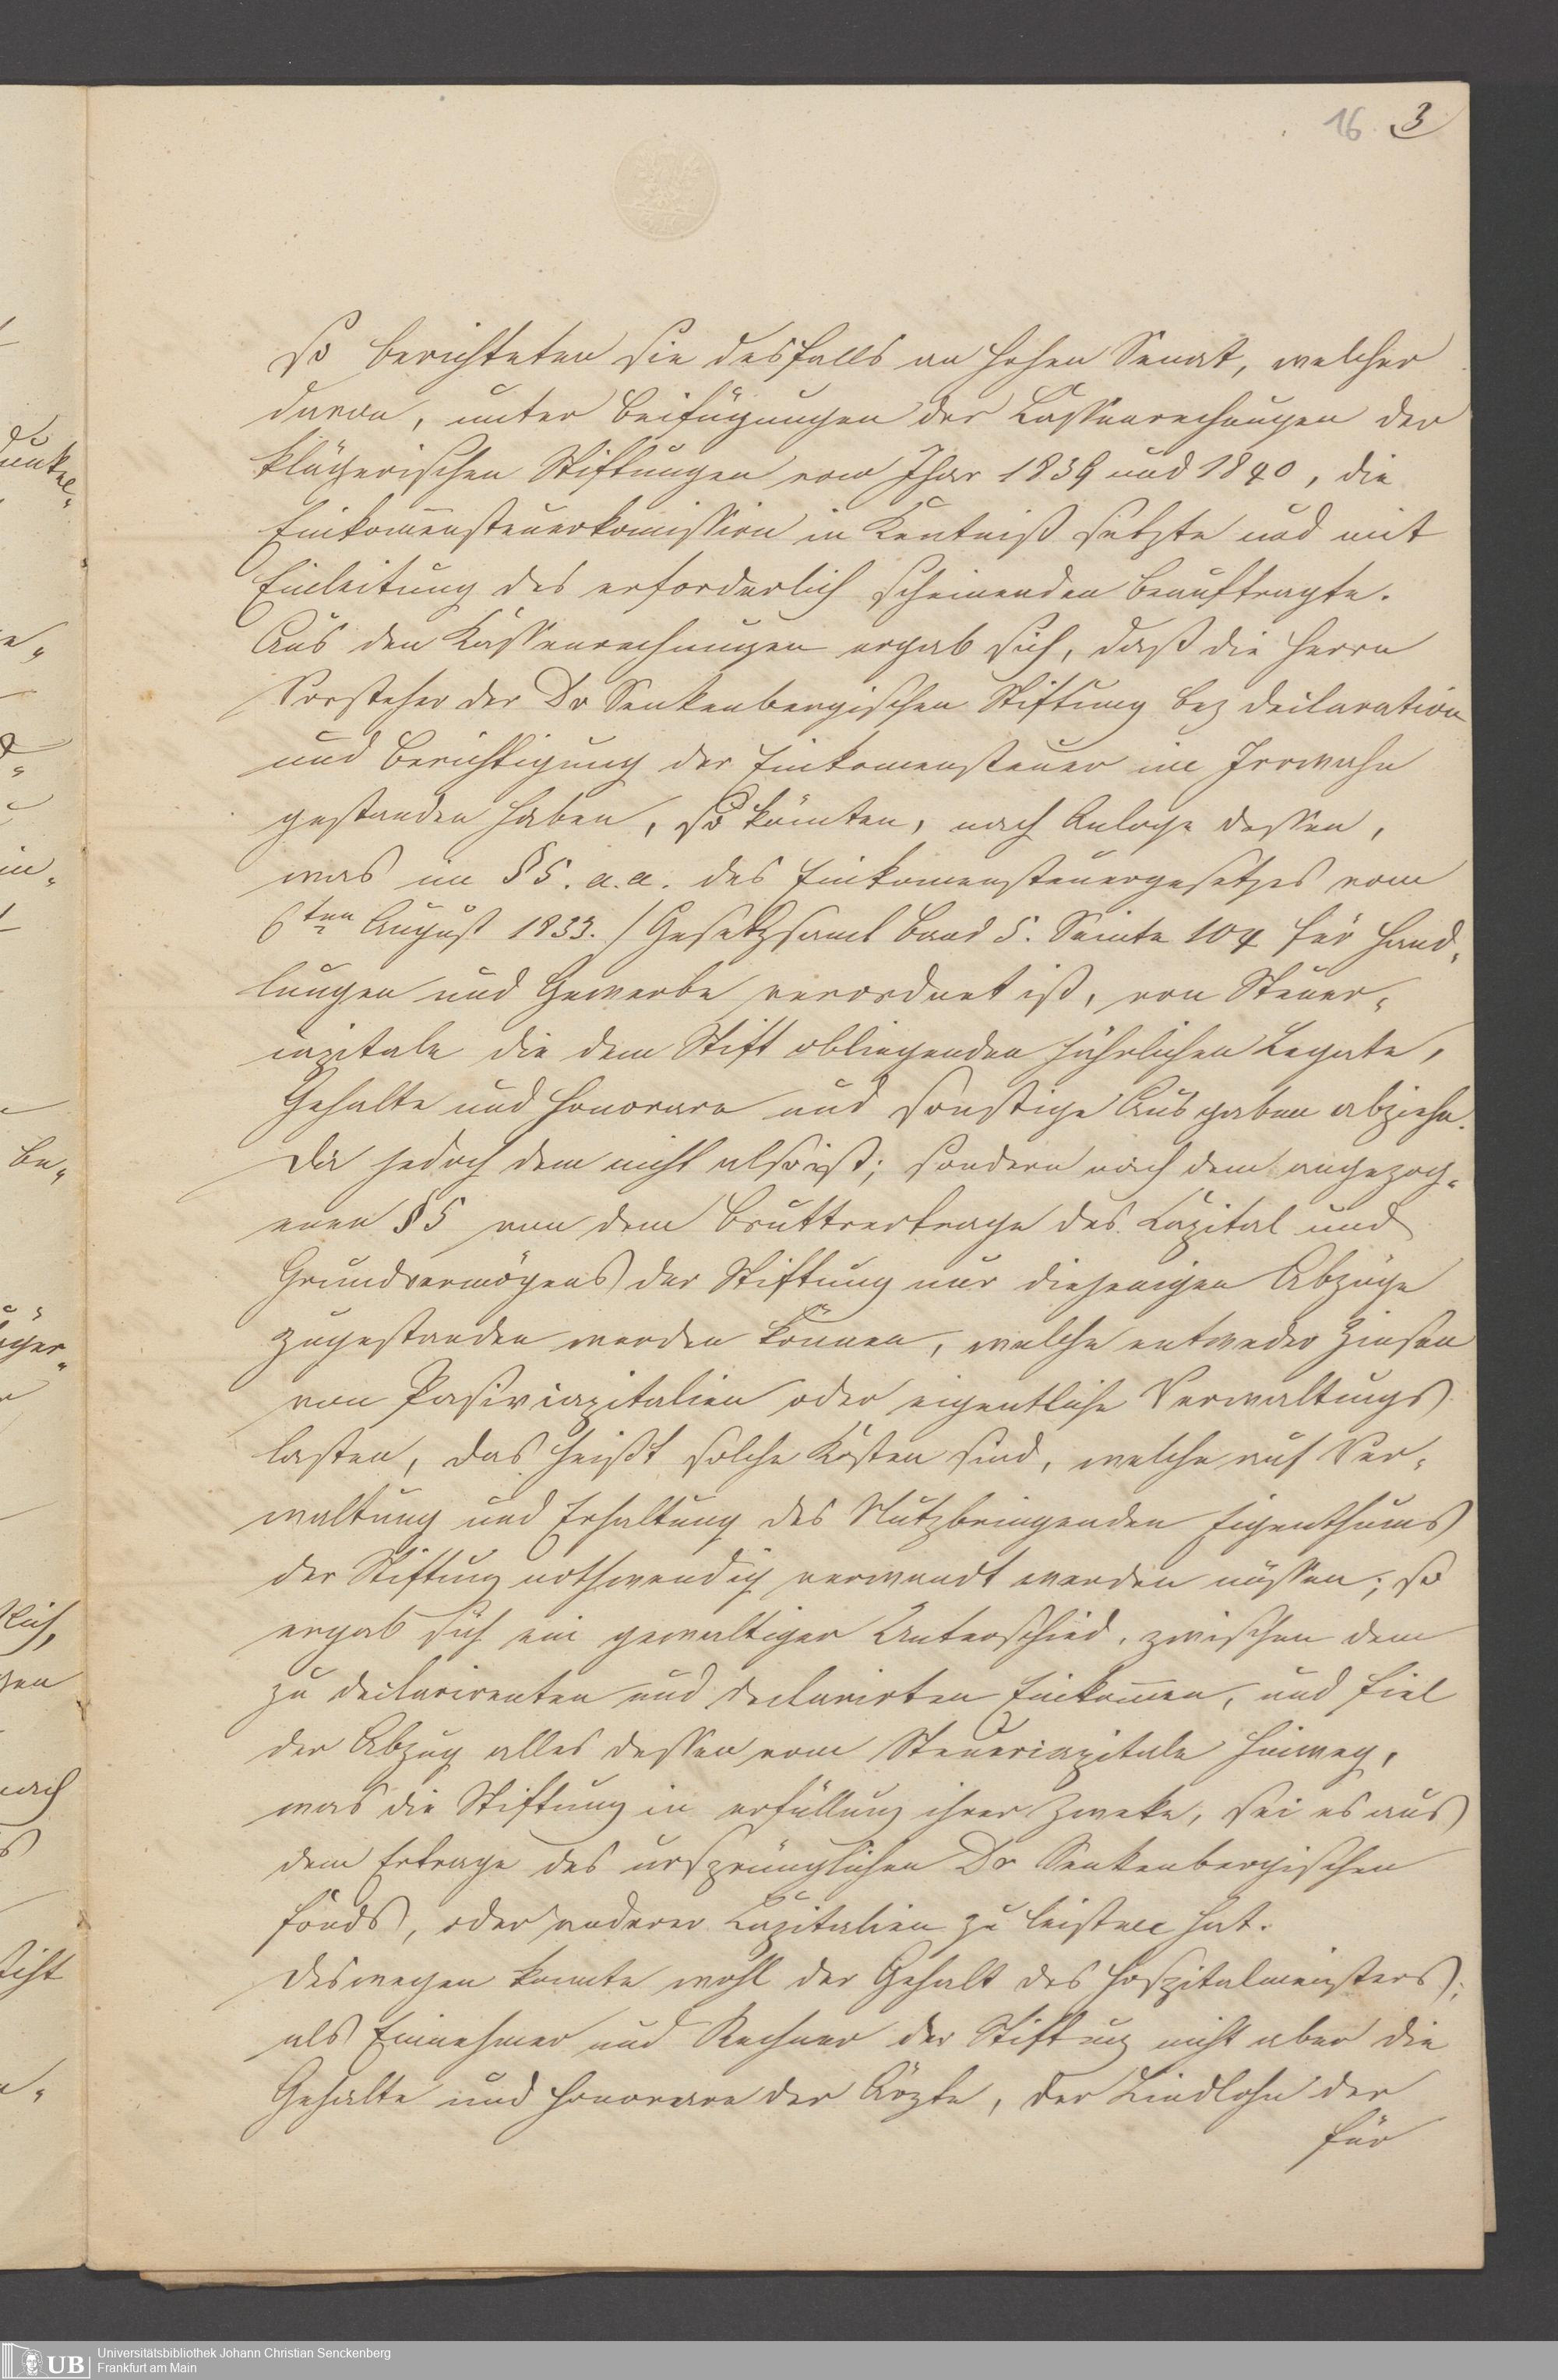 16 3
so berichteten sie desfalls an hohen Senat, welcher
davon, unter Beifügungen der Cassenrechnungen der
klägerischen Stiftungen vom Jhar 1839 und 1840, die
Einkom̄ensteuerkom̄ission in Kentniß setzte und mit
Einleitung des erforderlich scheinenden beauftragte.
Aus den Kassenrechnungen ergab sich, daß die Herrn
Vorsteher der Dr Senkenbergischen Stiftung bez declaration
und Berichtigung der Einkomensteuer im Irrwahn
gestanden haben, so könnten, nach Anloge dessen,
was im § 5. a.a. des Einkomensteuergesetzes vom
6ten August 1833. / Gesetzsaml Band 5. Seinte 104 für Hand„
lungen und Gewerbe verordnet ist, von Steuer„
capitale die dem Stift obliegenden jährlichen Legate,
Gehalte und Honorare und sonstige Ausgaben abziehn.
Da jedoch dem nicht also ist; sondern nach dem angezog„
enen § 5 von dem Bruttoertrage des Capital und
Grundvermögens der Stiftung nur diejenigen Abzüge
zugestanden werden können, welche entweder Zinsen
von Pasivcapitalien oder eigentliche Verwaltungs
lasten, das heißt solche Kosten sind, welche auf Ver„
waltung und Erhaltung des Nutzbringenden Eigenthums
der Stiftung nothwendig verwandt werden müssen; so
ergab sich ein gewaltiger Unterschied, zwischen dem
zu declarirenten und declarirten Einkom̄en, und fiel
der Abzug alles dessen vom Steuercapitale hinweg,
was die Stiftung in erfüllung ihrer Zweke, sei es aus
dem Ertrage des ursprünglichen Dr Senkenbergischen
Fonds, oder anderer Capitalien zu leisten hat.
Deswegen konnte wohl der Gehalt des Hospitalmeisters;
als Einnehmer und Rechner der Stiftung nicht aber die
Gehalte und Honorare der Ärzte, der Liedlohn der
für
Universitätsbibliothek Johann Christian Senckenberg
Frankfurt am Main
UB